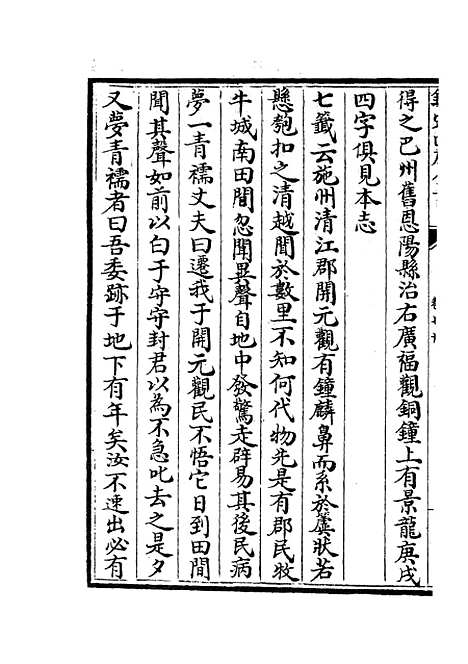 得之巴州舊恩陽縣治右廣福觀銅鐘上有景龍庚戌
四字俱見本志
七籤云施州清江郡開元觀有鐘麟鼻而系於簴狀若
懸匏扣之清越聞於數里不知何代物先是有郡民牧
牛城南田間忽聞異聲自地中發驚走辟易其後民病
夢一青襦丈夫曰遷我于開元觀民不悟它日到田間
聞其聲如前以白于守守封君以為不急叱去之是夕
又夢青襦者曰吾委跡于地下有年矣汝不速出必有